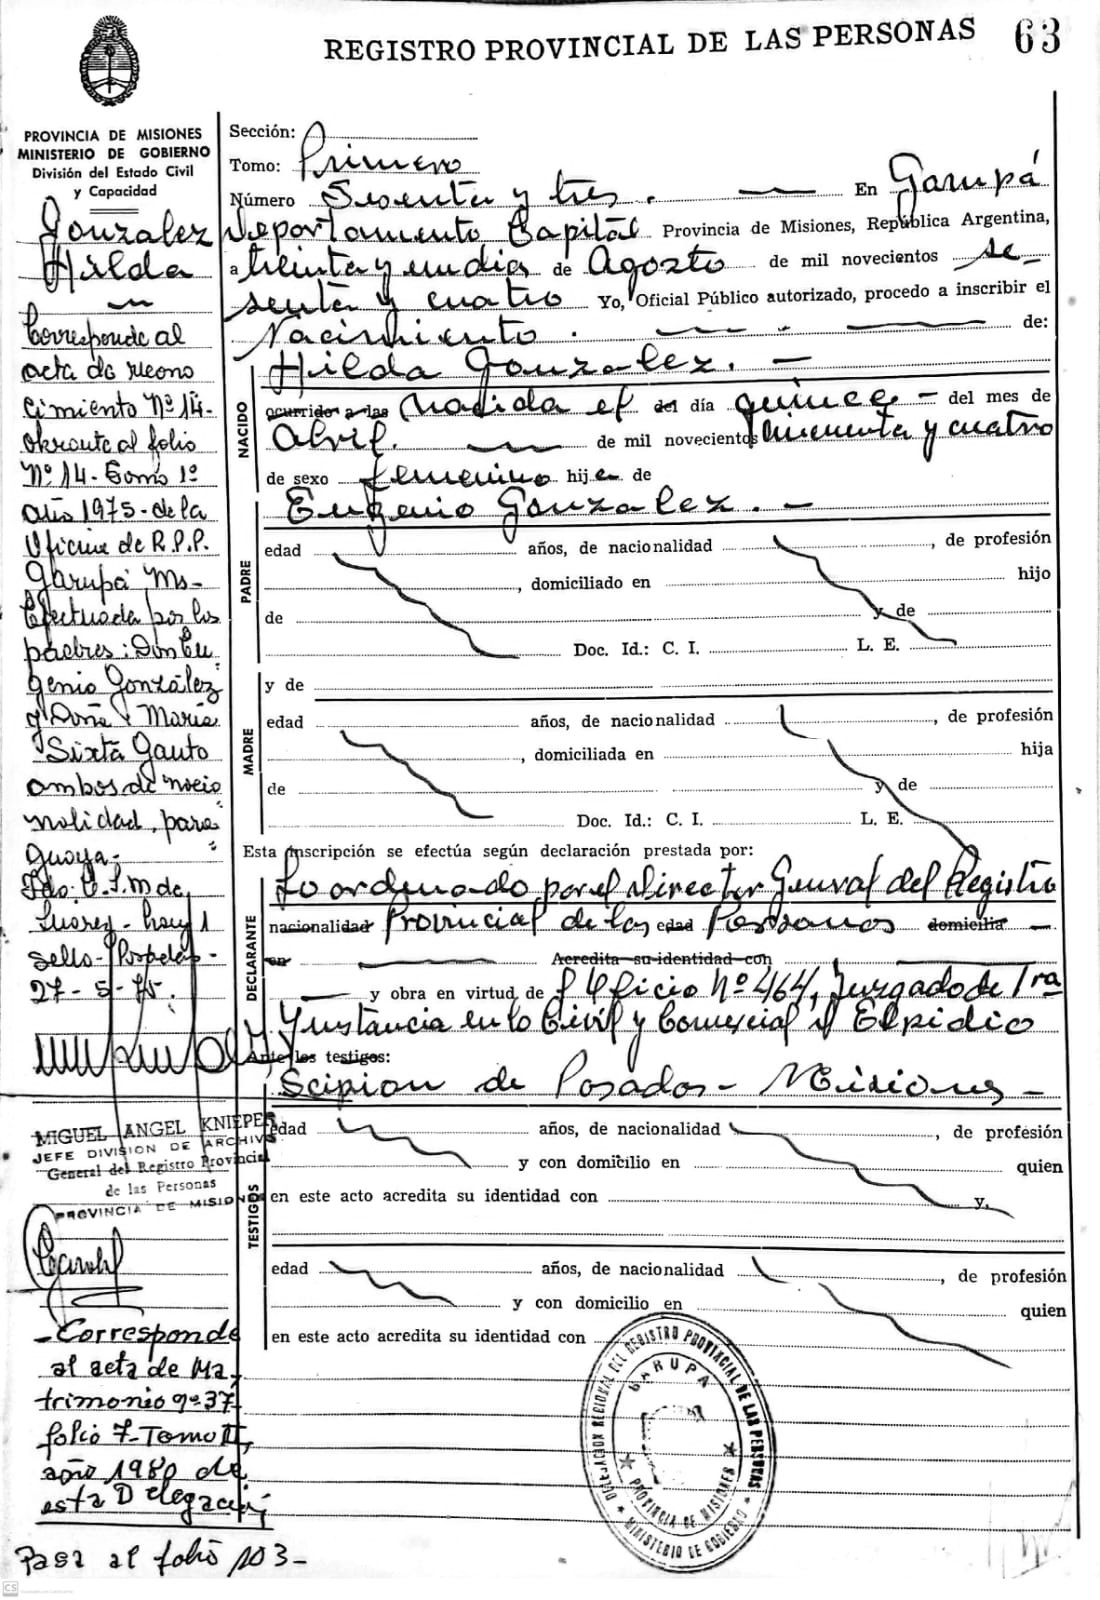 REGISTRO PROVINCIAL DE LAS PERSONAS 63
PROVINCIA DE MISIONES
MINISTERIO DE GOBIERNO
División del Estado Civil
y Capacidad
Gonzalez
Hilda
Corresponde al
acta de recono
cimiento Nº 14-
obrante al folio
Nº 14- Tomo 1º
año 1975- de la
Oficina de R.P.P.
Garupá, Ms-
Efectuada por los
padres: Don Eu
genio González
y Doña María
Sixta Gauto
ambos de nacio
nalidad, para
guaya-
Fdo: O.S.M de
Suarez- hay 1
sello- Pospelas-
27-5-75.
MIGUEL ANGEL KNIEPER
JEFE DIVISION DE ARCHIVO
General del Registro Provincial
de las Personas
PROVINCIA DE MISIONES
-Corresponde
al acta de Ma-
trimonio nº 37
folio 7-Tomo II,
año 1980 de
esta Delegación
Pasa al folio 103-
Sección:
Tomo: Primero
Número Sesenta y tres. En Garupá
Departamento Capital Provincia de Misiones, República Argentina,
a treinta y un dia de Agosto de mil novecientos se-
senta y cuatro Yo, Oficial Público autorizado, procedo a inscribir el
Nacimiento. de:
NACIDO
Hilda Gonzalez. -
ocurrido a las Nacida el del día quince - del mes de
Abril. de mil novecientos cincuenta y cuatro
de sexo femenino hija de
PADRE
Eugenio Gonzalez. -
edad años, de nacionalidad , de profesión
, domiciliado en hijo
de y de
Doc. Id.: C. I. L. E.
MADRE
y de
edad años, de nacionalidad , de profesión
, domiciliada en hija
de y de
Doc. Id.: C. I. L. E.
Esta inscripción se efectúa según declaración prestada por:
DECLARANTE
Lo ordenado por el Director General del Registro
nacionalidad Provincial de las edad Personas domicilia
en Acredita su identidad con
y obra en virtud de Oficio Nº 464, Juzgado de 1ra
Instancia en lo Civil y Comercial Elpidio
Ante los testigos:
Scipion de Posadas- Misiones-
TESTIGOS
edad años, de nacionalidad , de profesión
y con domicilio en quien
en este acto acredita su identidad con y,
edad años, de nacionalidad , de profesión
y con domicilio en quien
en este acto acredita su identidad con
DELEGACION REGIONAL DEL REGISTRO PROVINCIAL DE LAS PERSONAS
GARUPA
PROVINCIA DE MISIONES
MINISTERIO DE GOBIERNO
CS